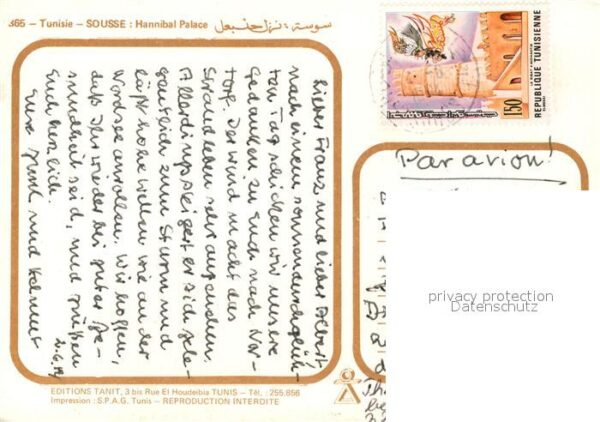 365 – Tunisie – SOUSSE : Hannibal Palace سوسة : نزل حنبعل
150
REPUBLIQUE TUNISIENNE
Par avion!
Lieber Franz und lieber Albert
nach einem sonnendurchglüh-
ten Tag schicken wir unsere
Gedanken zu Euch nach Nor-
torf. Der Wind macht das
Strandleben sehr angenehm.
Allerdings steigert er sich gele-
gentlich zum Sturm und
läßt hohe Wellen wie an der
Nordsee anrollen. Wir hoffen,
daß Ihr wieder bei guter Ge-
sundheit seid, und grüßen
Euch herzlich.
Eure und Helmut
2.6.
privacy protection
Datenschutz
EDITIONS TANIT, 3 bis Rue El Houdeibia TUNIS – Tél. : 255.656
Impression : S.P.A.G. Tunis – REPRODUCTION INTERDITE